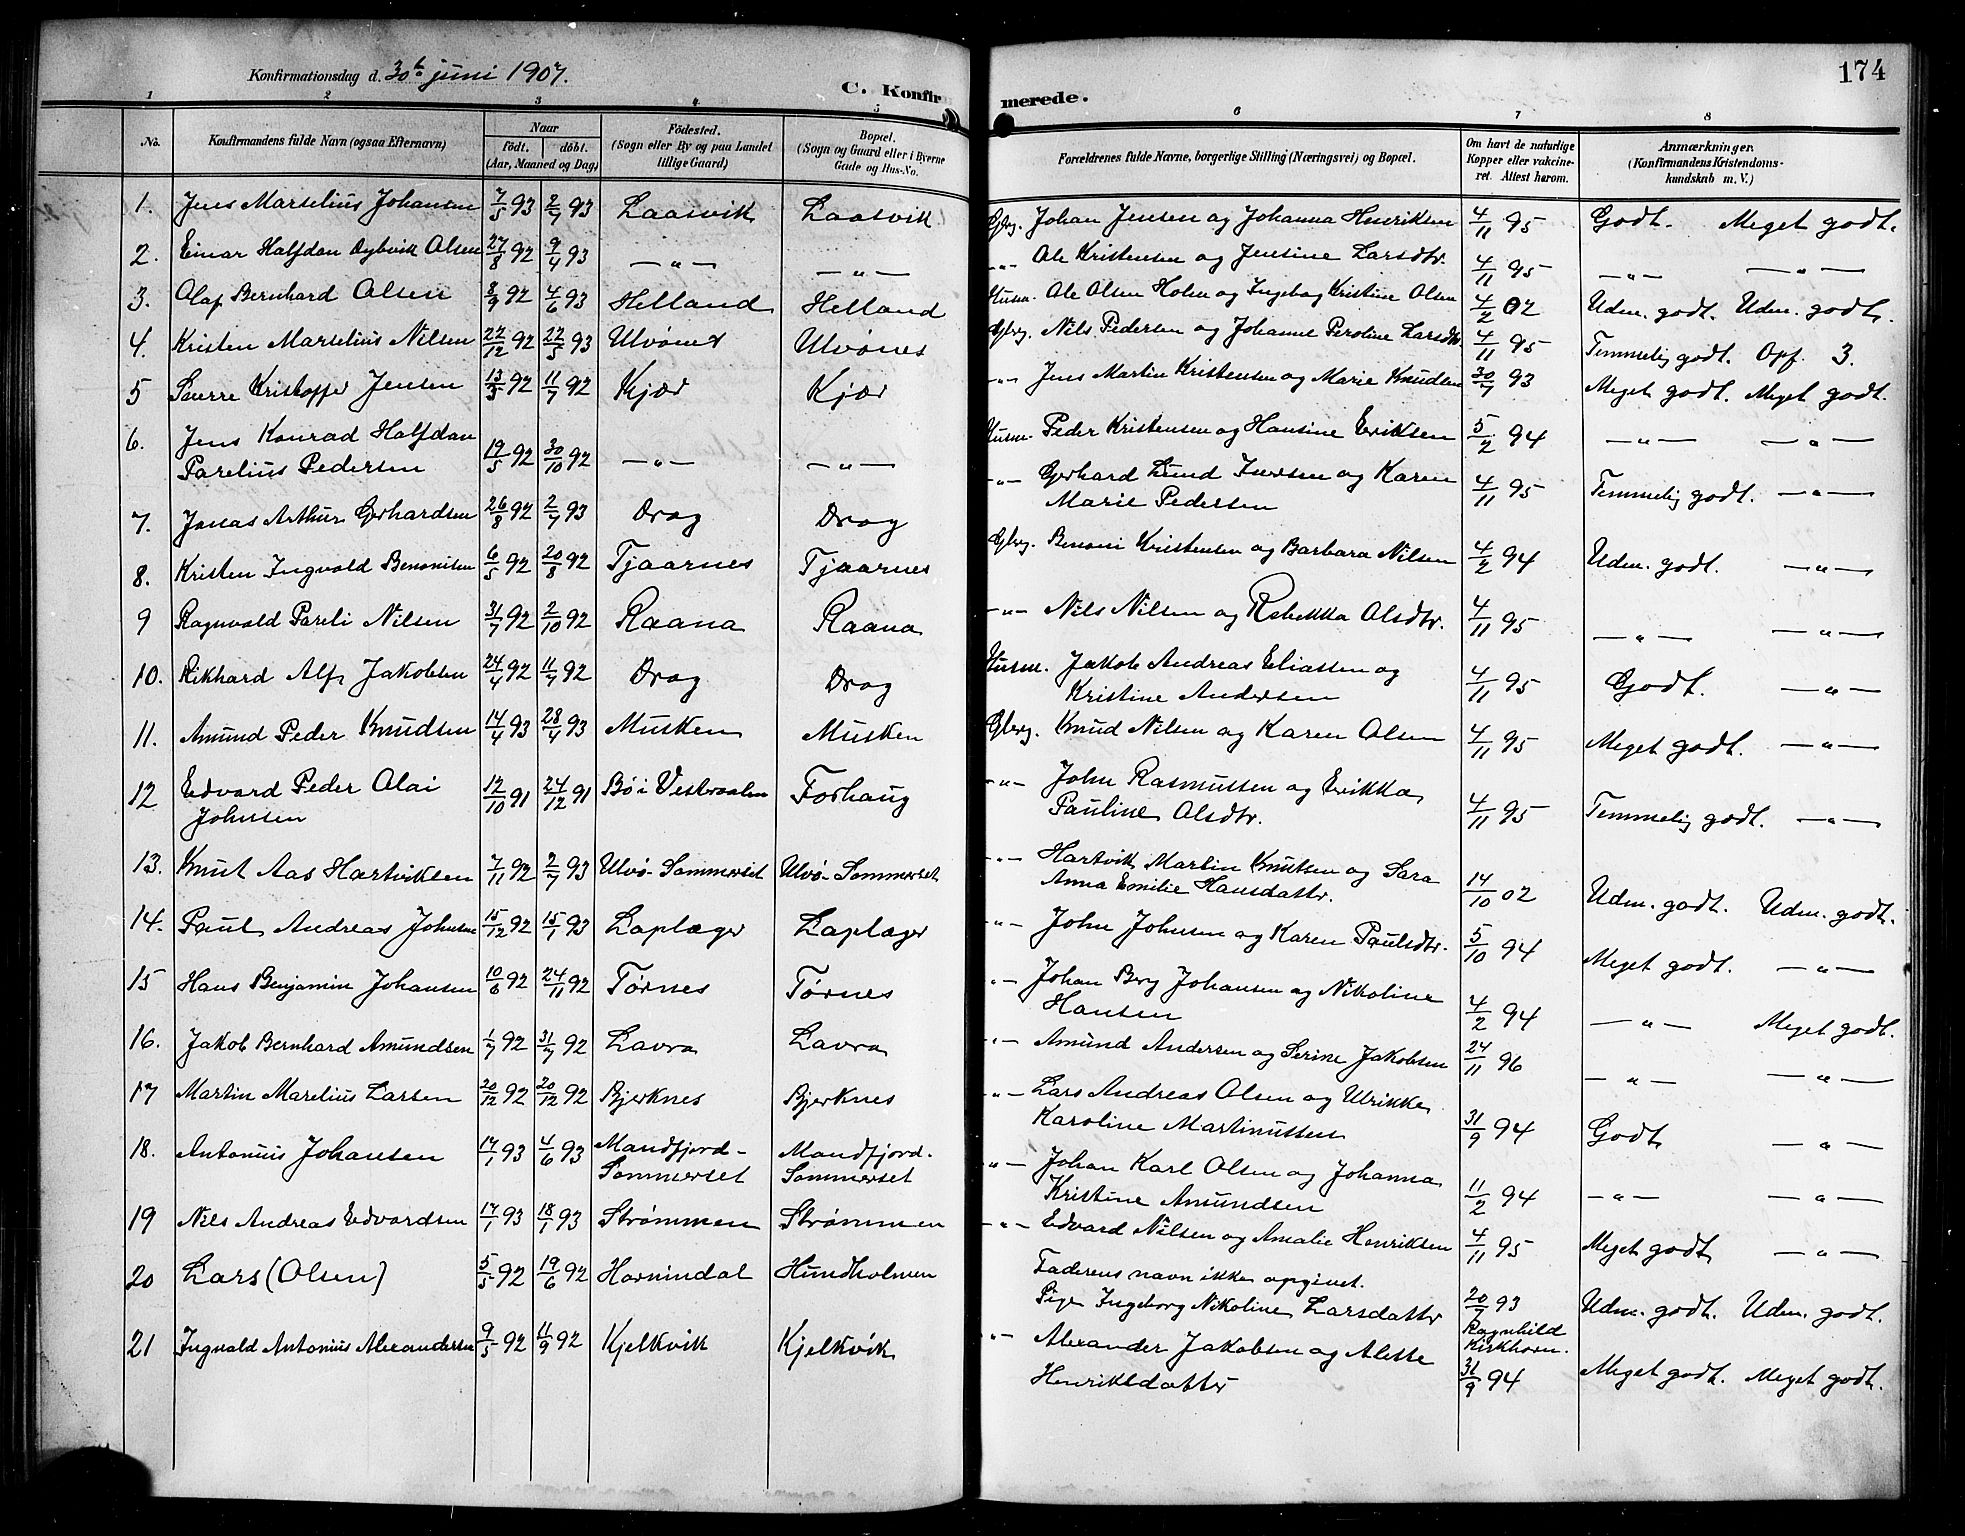 174
Konfirmationsdag d. 30te juni 1907.
C. Konfirmerede.
1 2 3 4 5 6 7 8
No. Konfirmandens fulde Navn (ogsaa Efternavn) Naar födt. döbt. (Aar, Maaned og Dag) Födested. (Sogn eller By og paa Landet tillige Gaard) Bopæl. (Sogn og Gaard eller i Byerne Gade og Hus-No. Forældrenes fulde Navne, borgerlige Stilling (Næringsvei) og Bopæl. Om havt de naturlige Kopper eller vakcineret. Attest herom. Anmærkninger. (Konfirmandens Kristendomskundskab m. V.)
1. Jens Marselius Johansen 7/5 93 2/7 93 Laasvik Laasvik Gbrg. Johan Jensen og Johanna Henriksen 4/11 95 Godt. Meget godt.
2. Einar Halfdan Dybvik Olsen 27/8 92 9/4 93 —"— —"— —"— Ole Kristensen og Jensine Larsdtr. 4/11 95 —"— —"—
3. Olaf Bernhard Olsen 8/9 92 4/6 93 Helland Helland Husm. Ole Olsen Holm og Ingeborg Kristine Olsen 4/2 02 Udm. godt. Udm. godt.
4. Kristen Marselius Nilsen 22/12 92 22/5 93 Ulvönes Ulvönes Gbrg. Nils Pedersen og Johanne Peroline Larsdtr. 4/11 95 Temmelig godt. Opf. 3.
5 Sverre Kristoffer Jensen 13/3 92 11/7 92 Kjær Kjær —"— Jens Martin Kristensen og Marie Knudsen 30/7 93 Meget godt. Meget godt.
6. Jens Konrad Halfdan
Parelius Pedersen 19/5 92 30/10 92 —"— —"— Husm. Peder Kristensen og Hansine Eriksen 5/2 94 —"— —"—
7. Jonas Arthur Gerhardsen 26/8 92 2/7 93 Drag Drag —"— Gerhard Lund Iversen og Karen
Marie Pedersen 4/11 95 Temmelig godt. —"—
8. Kristen Ingvald Benonisen 6/5 92 20/8 92 Tjaarnes Tjaarnes Gbrg. Benoni Kristensen og Barbara Nilsen 4/2 94 Udm. godt. —"—
9 Ragnvald Pareli Nilsen 31/7 92 2/10 92 Raana Raana —"— Nils Nilsen og Rebekka Olsdtr. 4/11 95 —"— —"—
10. Rikhard Alf Jakobsen 24/4 92 11/7 92 Drag Drag Husm. Jakob Andreas Eliassen og
Kristine Andersen 4/11 95 Godt. —"—
11. Amund Peder Knudsen 14/4 93 28/4 93 Musken Musken Gbrg. Knud Nilsen og Karen Olsen 4/11 95 Meget godt. —"—
12 Edvard Peder Olai
Johnsen 12/10 91 24/12 91 Bö i Vesteraalen Forhaug —"— John Rasmussen og Erikka
Pauline Olsdtr. 4/11 95 Temmelig godt. —"—
13. Knut Aas Hartviksen 7/11 92 2/7 93 Ulvö-Sommerset Ulvö-Sommerset —"— Hartvik Martin Knutsen og Sara
Anna Emilie Hansdattr. 14/10 02 Udm. godt. Udm. godt.
14. Paul Andreas Johnsen 15/12 92 15/1 93 Laplæger Laplæger —"— John Johnsen og Karen Paulsdtr. 5/10 94 Meget godt. —"—
15 Hans Benjamin Johansen 10/6 92 24/11 92 Törnes Törnes —"— Johan Berg Johansen og Nikoline
Hansen 4/2 94 —"— Meget godt.
16. Jakob Bernhard Amundsen 1/7 92 31/7 92 Lavra Lavra —"— Amund Andersen og Serine Jakobsen 24/11 96 —"— —"—
17 Martin Marelius Larsen 20/12 92 20/12 92 Bjerknes Bjerknes —"— Lars Andreas Olsen og Ulrikke
Karoline Martinussen 31/9 94 Godt —"—
18. Antonius Johansen 17/1 93 4/6 93 Mandfjord-
Sommerset Mandfjord-
Sommerset —"— Johan Karl Olsen og Johanna
Kristine Amundsen 11/2 94 —"— —"—
19 Nils Andreas Edvardsen 17/1 93 18/1 93 Strömmen Strömmen —"— Edvard Nilsen og Amalie Henriksen 4/11 95 Meget godt —"—
20 Lars (Olsen) 5/5 92 19/6 92 Hornindal Hundholmen Faderens navn ikke opgivet.
Pige Ingeborg Nikoline Larsdattr 20/7 93 Ragnhild Kirkhorn. Udm. godt. Udm. godt.
21 Ingvald Antonius Alexandersen 9/5 92 11/9 92 Kjelkvik Kjelkvik —"— Alexander Jakobsen og Alette
Henriksdatter 31/9 94 Meget godt. Meget godt.